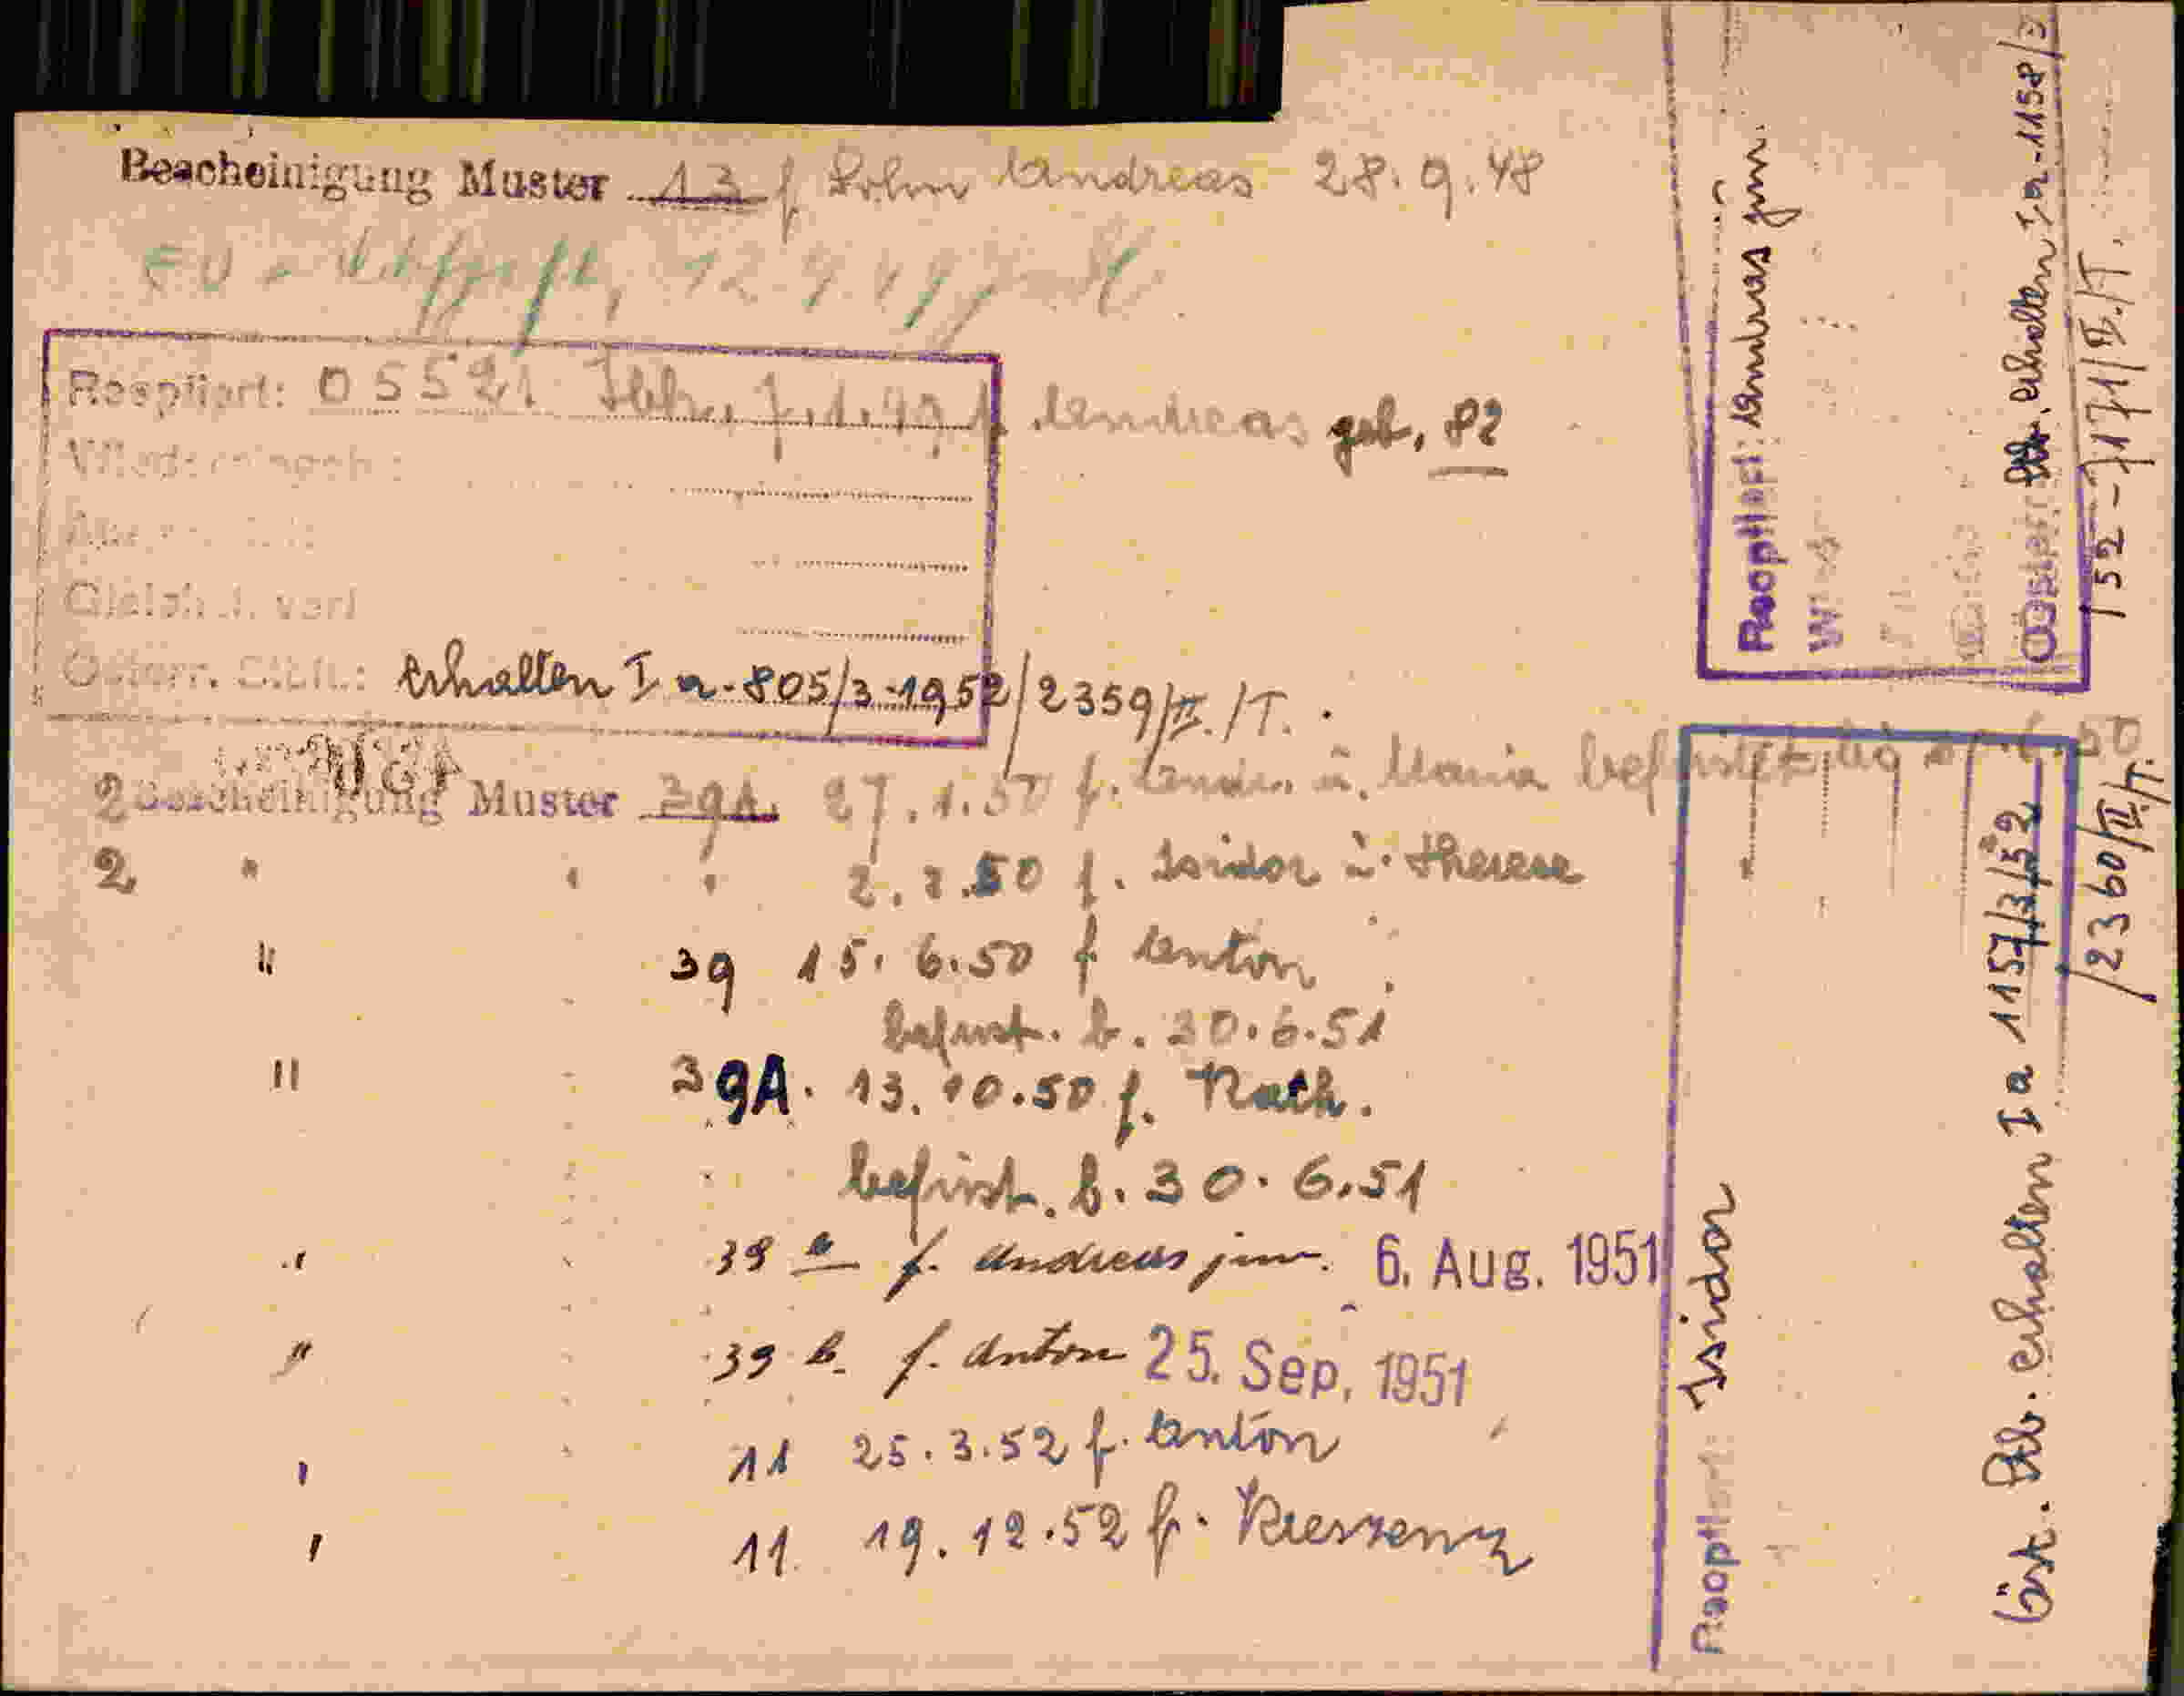 Bescheinigung Muster 13 f Sohn Andreas 28.9.48
Reoptiert: 05521 7.1.49 f. Andreas geb. 82
Gleich
Österr. Stbft.: erhalten I a-805/3-1952/2359/II./T.
2 Bescheinigung Muster 39A. 27.1.50 f. Andr. u. Maria befristet bis
2 " " " 2.2.50 f. Isidor u. Therese
" 39 15.6.50 f Anton
befrist. b. 30.6.51
" 39A. 13.10.50 f. Kath.
befrist. b. 30.6.51
" 39 a f. Andreas jun. 6. Aug. 1951
" 39 b. f. Anton 25. Sep. 1951
" 11 25.3.52 f. Anton
" 11. 19.12.52 f. Kreszenz
Reoptiert: Andreas jun.
Österr. Stb. erhalten I a-1158/3
/52-7171/II./T.
Reoptiert: Isidor
Öst. Stb. erhalten I a 1157/3/52
/2360/II./T.